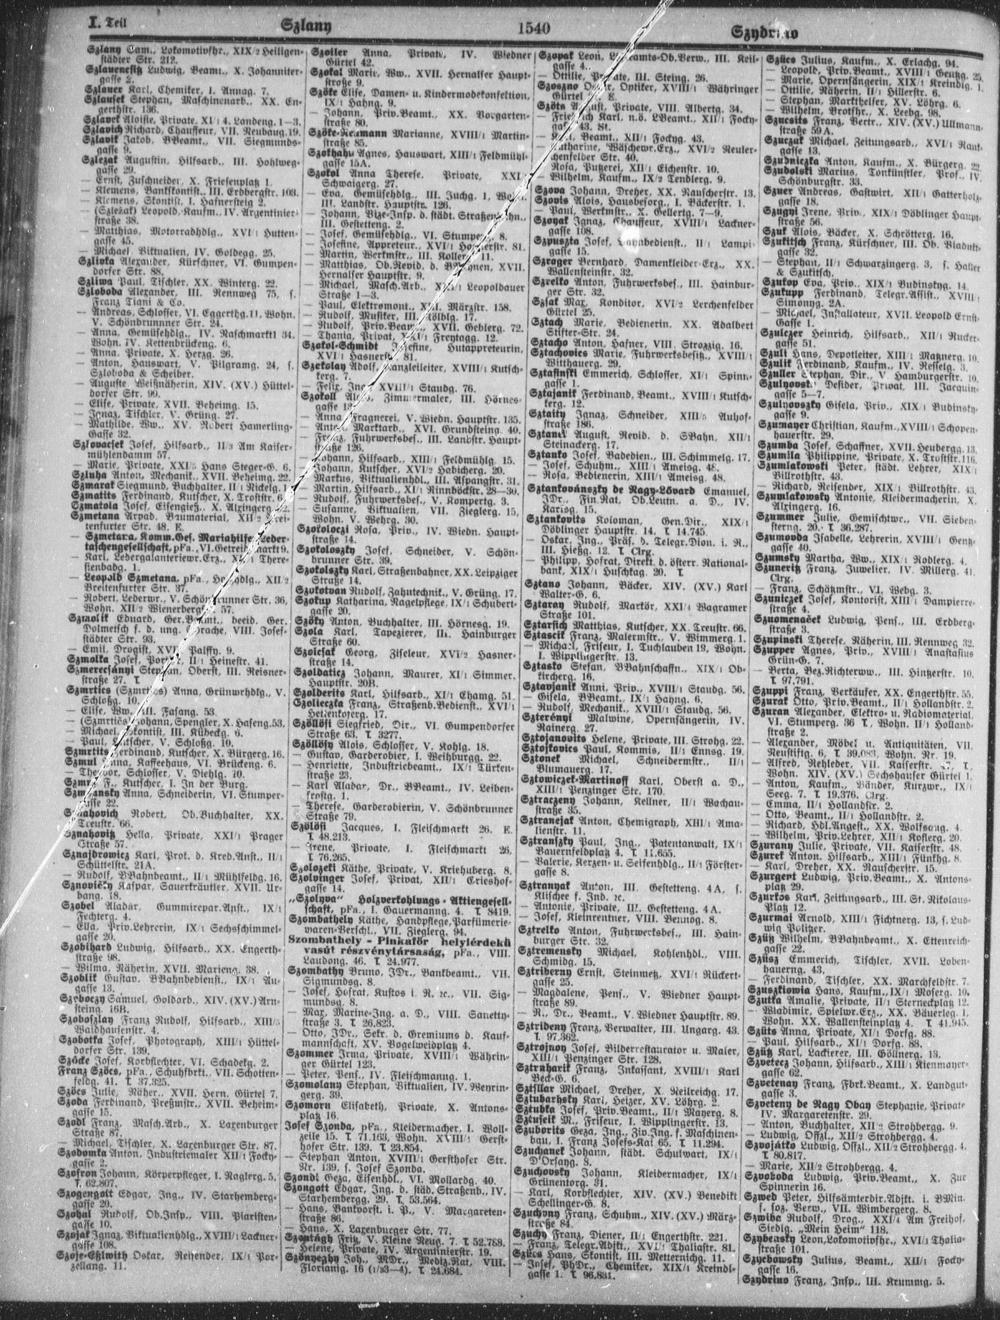 I. Teil
Szlany
1540
Szlany Cam., Lokomotivfhr., XIX/2 Heiligen-
städter Str. 212.
Szlauensig Ludwig, Beamt., X. Johanniter-
gasse 2.
Szlauer Karl, Chemiker, I. Annag. 7.
Szlausek Stephan, Maschinenarb., XX. En-
gerthstr. 136.
Szlavet Aloisie, Private, XI/4. Landeng. 1—3.
Szlavich Richard, Chauffeur, VII. Neubaug. 19.
Szlavik Jakob, BBeamt., VII. Siegmunds-
gasse 9.
Szlezak Augustin, Hilfsarb., III. Hohlweg-
gasse 29.
— Ernst, Zuschneider, X. Friesenplatz 1.
— Klemens, Bankkontist., III. Erdbergstr. 103.
— Klemens, Skontist, I. Hafnersteig 2.
— (Slezak) Leopold, Kaufm., IV. Argentinier-
straße 38.
— Matthias, Motorradhdlg., XVI/1 Hutten-
gasse 45.
— Michael, Viktualien, IV. Goldegg. 25.
Szlivka Alexander, Kürschner, VI. Gumpen-
dorfer Str. 88.
Szliwa Paul, Tischler, XX. Winterg. 22.
Szloboda Alexander, III. Rennweg 75, s.
Franz Tiani & Co.
— Andreas, Schlosser, VI. Eggerthg. 11, Wohn.
V. Schönbrunner Str. 24.
— Anna, Gemüsehdlg., IV. Naschmarkt 34,
Wohn. IV. Kettenbrückeng. 6.
— Anna, Private, X. Herzg. 26.
— Anton, Hauswart, V. Pilgramg. 24, s.
Szloboda & Schreiber.
— Auguste, Weißnäherin, XIV. (XV.) Hüttel-
dorfer Str. 99.
— Elise, Private, XVII. Beheimg. 15.
— Ignaz, Tischler, V. Grüng. 27.
— Mathilde, Ww., XV. Robert Hamerling-
Gasse 32.
Szlovacsek Josef, Hilfsarb., II/3 Am Kaiser-
mühlendamm 57.
— Marie, Private, XXI/5 Hans Steger-G. 6.
Szluha Anton, Mechanik., XVII. Beheimg. 22.
Szmarak Siegmund, Buchhalter, II/1 Rickelg. 1
Szmatits Ferdinand, Kutscher, X. Troststr. 6.
Szmatola Josef, Eisengieß., X. Alxingerg. 12.
Szmetana Arpad, Baumaterial, XII/2 Brei-
tenfurter Str. 48. E.
— Szmetara, Komm.Ges. Mariahilfer Leder-
taschengesellschaft, pFa., VI. Getreidemarkt 9.
— Karl, Ledergalanteriewr.Erz., XI. There-
sienbadg. 1.
— Leopold Szmetana, pFa., Holzhdlg., XII/2
Breitenfurter Str. 37.
— Robert, Lederw., V. Schönbrunner Str. 36,
Wohn. XII/2 Wienerbergstr. 57.
Szmolik Eduard, Ger.Beamt., beeid. Ger.
Dolmetsch f. d. ung. Sprache, VIII. Josef-
städter Str. 93.
— Emil, Drogist, XVI. Palffyg. 9.
Szmolka Josef, Portier, II/1 Heinestr. 41.
Szmrecsányi Stephan, Oberst, III. Reisner-
straße 27. T
Szmrtics (Szmrtics) Anna, Grünwrhdlg., V.
Schloßg. 10.
— Elise, Ww., III. Fasang. 53.
— (Szmrtics) Johann, Spengler, X. Hafeng. 53.
— Michael, Kontist, III. Kübeckg. 6.
— Paul, Kutscher, V. Schloßg. 10.
Szmrits Ferdinand, Kutscher, X. Bürgerg. 16.
Szmul Anna, Kaffeehaus, VI. Brückeng. 6.
— Theodor, Schlosser, V. Diehlg. 10.
— F., Kutscher, I. In der Burg.
Anna, Schneiderin, VI. Stumper-
gasse 22.
Robert, Ob.Buchhalter, XX.
Treustr. 66.
Sznahovitz Hella, Private, XXI/1 Prager
Straße 57.
Sznajdrowicz Karl, Prof. d. Kred.Anst., II/1
Schüttelstr. 21A.
— Rudolf, BBahnbeamt., II/1 Mühlfeldg. 16.
Sznovičy Kaspar, Sauerkräutler, XVII. Ur-
bang. 18.
Szobel Aladar, Gummirepar.Anst., IX/1
Fechterg. 4.
— Ella, Priv.Lehrerin, IX/1 Sechsschimmel-
gasse 20.
Szobihard Ludwig, Hilfsarb., XX. Engerth-
straße 98.
— Wilma, Näherin, XVII. Marieng. 38.
Szoblik Gustav, BBahnbedienst., IX/1 Au-
gasse 13.
Szoboczy Samuel, Goldarb., XIV. (XV.) Arn-
steing. 16B.
Szoboszlay Franz Rudolf, Hilfsarb., XIII/5
Waidhausenstr. 4.
Szobotka Josef, Photograph, XIII/1 Hüttel-
dorfer Str. 139.
Szöcke Josef, Korbflechter, VI. Schadekg. 2.
Franz Szöcs, pFa., Schuhfbrkt., VII. Schotten-
feldg. 41. T 37.325.
Szöcs Julie, Näher., XVII. Hern. Gürtel 7.
Szoda Ferdinand, Preßunstr., XVII. Beheim-
gasse 15.
Szodl Franz, Masch.Arb., X. Laxenburger
Straße 87.
— Michael, Tischler, X. Laxenburger Str. 87.
Szodomka Anton, Industriemaler, XII/1 Focky-
gasse 2.
Szofron Johann, Körperpfleger, I. Naglerg. 5.
T 62.807.
Szogengott Edgar, Ing., IV. Starhemberg-
gasse 29.
Szohnl Rudolf, Ob.Insp., VIII. Piaristen-
gasse 10.
Szojak Ignaz, Viktualienhdlg., XVIII/1 Lackner-
gasse 108.
Szojer-Ellwith Oskar, Reisender, IX/1 Por-
zellang. 11.
Szoiler Anna, Privat., IV. Wiedner
Gürtel 42.
Szokal Marie, Ww., XVII. Hernalser Haupt-
straße 9.
Szöke Elise, Damen- u. Kindermodekonfektion,
IX/1 Hahng. 9.
— Johann, Priv.Beamt., XX. Vorgarten-
straße 80.
Szöke-Neumann Marianne, XVIII/1 Martin-
straße 85.
Szokhahu Agnes, Hauswart, XIII/1 Feldmühl-
gasse 15A.
Szokol Anna Therese, Private, XXI/
Schwaigerg. 27.
— Eva, Gemüsehdlg., III. Juchg. 1, Wohn.
III. Landstr. Hauptstr. 126.
— Johann, Vize-Insp. d. städt. Straßenbahn,
III. Gestetteng. 2.
— Josef, Gemüsehdlg., VI. Stumperg. 8.
— Josefine, Appreteur., XVI/ Hasnerstr. 81.
— Martin, Werkmstr., III. Kollerg. 11.
— Matthias, Ob.Revid. d. Bahnen, XVII.
Hernalser Hauptstr. 9.
— Michael, Masch.Arb., XXI/ Leopoldauer
Straße 1—3.
— Paul, Elektromont., XVI. Märzstr. 158.
— Rudolf, Musiker, III. Kölblg. 17.
— Rudolf, Priv.Beamt., XVII. Geblerg. 72.
— Thania, Privat., XXI/ Freytagg. 12.
Szokol-Schmidt Josefine, Hutappreteurin,
XVI/1 Hasnerstr. 81.
Szekolay Adolf, Kanzleileiter, XVIII/1 Kutsch-
kerg. 7.
— Felix, Ing., XVIII/1 Staudg. 76.
Szokoll Alois, Zimmermaler, III. Hörnes-
gasse
— Anna, Fragnerei, V. Wiedn. Hauptstr. 135.
— Anton, Marktard., XVI. Grundsteing. 40.
— Franz, Fuhrwerksbes., III. Landstr. Haupt-
straße 126.
— Johann, Hilfsarb., XIII/1 Feldmühlg. 15.
— Johann, Kutscher, XVI/2 Habicherg. 20.
— Markus, Viktualienhdl., III. Aspangstr. 31.
— Martin, Hilfsarb., XI/1 Rinnböckstr. 28—30.
— Rudolf, Fuhrwerksbes., V. Kompertg. 3.
— Susanne, Viktualien, VII. Zieglerg. 15,
Wohn. V. Wehrg. 30.
Szokoloczi Rosa, Priv., IV. Wiedn. Haupt-
straße 14.
Szokoloszky Josef, Schneider, V. Schön-
brunner Str. 39.
Szokolszky Karl, Straßenbahner, XX. Leipziger
Straße 14.
Szokotvan Rudolf, Zahntechnik., V. Grüng. 17.
Szokup Katharina, Nagelpflege, IX/1 Schubert-
gasse 20.
Szöky Anton, Buchhalter, III. Hörnesg. 19.
Szola Karl, Tapezierer, III. Hainburger
Straße 60.
Szolcsak Georg, Ziseleur, XVI/2 Hasner-
straße 14.
Szoldaticz Johann, Maurer, XI/1 Simmer.
Hauptstr. 20B.
Szolderits Karl, Hilfsarb., XI/1 Ehamg. 51.
Szolieczka Franz, Straßenb.Bedienst., XVI/1
Hellenkoterg. 17.
Szöllösi Siegfried, Dir., VI. Gumpendorfer
Straße 63. T 3277.
Szöllösy Alois, Schlosser, V. Kohlg. 18.
— Gustav, Garderobier, I. Weihburgg. 22.
— Henriette, Industriebeamt., IX/1 Türken-
straße 23.
— Karl Aladar, Dr., BBeamt., IV. Leiben-
frostg. 1.
— Therese, Garderobierin, V. Schönbrunner
Straße 79.
Szölösi Jacques, I. Fleischmarkt 26. E.
T 48.213.
— Irene, Private, I. Fleischmarkt 26.
T 76.265.
Szolozeki Käthe, Private, V. Kriehuberg. 8.
Szolvinger Josef, Privat, XII/1 Grieshof-
gasse 14.
„Szolwa" Holzverkohlungs-Aktiengesell-
schaft, pFa., I. Gauermanng. 4. T 8419.
Szombathely Käthe, Handpflege, Parfümerie-
waren-Verschl., VII. Zieglerg. 94.
Szombathely - Pinkafőr helyiérdekű
vasút részvénytársaság, pFa., VIII.
Laudong. 46. T 24.977.
Szombathy Bruno, JDr., Bankbeamt., VII.
Sigmundsg. 8.
— Josef, Hofrat, Kustos i. R. ꝛc., VII. Sig-
mundsg. 8.
— Max, Marine-Ing. a. D., VIII. Sanetty-
straße 3. T 26.823.
— Otto, JDr., Sekr. d. Gremiums d. Kauf-
mannschaft, XV. Vogelweidplatz 4.
Szommer Irma, Private, XVIII/1 Währin-
ger Gürtel 123.
— Peter, Pens., IV. Fleischmanng. 1.
Szomolany Stephan, Viktualien, IV. Weyrin-
gerg. 39.
Szomorn Elisabeth, Private, X. Antons-
platz 16.
Josef Szonda, pFa., Kleidermacher, I. Woll-
zeile 15. T 71.163, Wohn. XVIII/1 Gerst-
hofer Str. 139. T 23.854.
— Stephan Anton, XVIII/1 Gersthofer Str.
Nr. 139, s. Josef Szonda.
Szondl Geza, Eisenhdl., VI. Mollardg. 40.
Szongott Edgar, Ing. d. städt. Straßenb., IV.
Starhembergg. 29. T 53.564.
— Hans, Bankvorst. i. P., V. Margareten-
straße 86.
— Hans, X. Laxenburger Str. 77.
Szontágh Fritz, V. Kleine Neug. 7. T 52.768.
— Helene, Private, IV. Argentinierstr. 19.
Szönyeghy Joh., MDr., Mediz.Rat, VIII.
Florianig. 16 (1/23—4). T 24.684.
Szopak Leon, Ob.Beamts-Ob.Verw., III. Keil-
gasse 4.
— Ottilie, Private, III. Steing. 26.
Szoszno Oskar, Optiker, XVIII/1 Währinger
Gürtel
Szöts August, Private, VIII. Albertg. 34.
— Friedrich Karl, n.ö. LBeamt., XII/1 Focky-
gasse 43. St.
— Karl, Beamt., XII/1 Fockyg. 43.
— Katharine, Wäschewr.Erz., XVI/2 Neuler-
chenfelder Str. 40.
— Rosa, Putzerei, XII/1 Eichenstr. 10.
— Wilhelm, Kaufm., IX/2 Tendlerg. 9.
Szova Johann, Dreher, XX. Rauscherstr. 13.
Szovis Alois, Hausbesorg., I. Bäckerstr. 1.
— Paul, Werkmstr., X. Gellertg. 7—9.
Szoyak Ignaz, Gasseur, XVIII/1 Lackner-
gasse 108.
Szpuszta Josef, Bahnbedienst., II/1 Lampi-
gasse 15.
Szroger Bernhard, Damenkleider-Erz., XX.
Wallensteinstr. 32.
Szrelko Anton, Fuhrwerksbes., III. Hainbur-
ger Str. 32.
Szsak Max, Konditor, XVI/2 Lerchenfelder
Gürtel 25.
Sztach Marie, Bedienerin, XX. Adalbert
Stifter-Str. 24.
Sztacho Anton, Hafner, VIII. Strozzig. 16.
Sztachovics Marie, Fuhrwerksbesitz., XVIII/1
Witthauerg. 29.
Sztafinski Emmerich, Schlosser, XI/1 Spinn-
gasse 1.
Sztajanik Ferdinand, Beamt., XVIII/1 Kutsch-
kerg. 12.
Sztaity Ignaz, Schneider, XIII/5 Auhof-
straße 186.
Sztanek August, Revid. d. SBahn, XII/1
Steinackerg. 17.
Sztanko Josef, Badedien., III. Schimmelg. 17.
— Josef, Schuhm., XIII/1 Ameisg. 48.
— Rosa, Bedienerin, XIII/1 Ameisg. 48.
Sztankovánszky de Nagy-Lóvard Emanuel,
JDr., Fin.Rat, Ob.Leutn. a. D., IV.
Karlsg. 15.
Sztankovits Koloman, Gen.Dir., XIX/1
Döblinger Hauptstr. 14. T 14.745.
— Oskar, Ing., Präs. d. Telegr.Dion. i. R.,
III. Hießg. 12. T Clrg.
— Philipp, Hofrat, Direkt. d. österr. National-
bank, XIX/1 Huschkag. 20. T
Sztano Johann, Bäcker, XIV. (XV.) Karl
Walter-G. 6.
Sztaray Rudolf, Markör, XXI/1 Wagramer
Straße 101.
Sztarsich Matthias, Kutscher, XX. Treustr. 66.
Sztascif Franz, Malermstr., V. Wimmerg. 1.
— Michael, Friseur, I. Tuchlauben 19, Wohn.
I. Wipplingerstr. 13.
Sztasko Stefan, BBahnschaffn., IX/1 Ob-
kircherg. 16.
Sztavjanik Anni, Priv., XVIII/1 Staudg. 56.
— Gisela, BBeamt., IX/1 Hahng. 6.
— Rudolf, Mechanik., XVIII/1 Staudg. 56.
Szterényi Malwine, Opernsängerin, IV.
Rainerg. 27.
Sztojanovits Helene, Private, III. Strohg. 22.
Sztojkovics Paul, Kommis, II/1 Ennsg. 19.
Sztonek Michael, Schneidermstr., II/1
Blumauerg. 17.
Sztowiczek-Martinoff Karl, Oberst a. D.,
XIII/1 Penzinger Str. 170.
Sztraczeny Johann, Kellner, II/1 Wachau-
straße 35.
Sztranejak Anton, Chemigraph, XIII/1 Ama-
lienstr. 11.
Sztranszky Paul, Ing., Patentanwalt, IX/1
Bauernfeldplatz 4. T 11.655.
— Valerie, Kerzen- u. Seifenhdlg., II/1 Förster-
gasse 8.
Sztranyak Anton, III. Gestetteng. 4A, s.
Klischee f. Ind. ꝛc.
— Antonie, Private, III/ Gestetteng. 4A.
— Josef, Kleinrentner, VIII. Bennog. 8.
Sztrelko Anton, Fuhrwerksbes., III. Hain-
burger Str. 32.
Sztremensky Michael, Kohlenhdl., VIII.
Schmidg. 15.
Sztriberny Ernst, Steinmetz, XVI/1 Rückert-
gasse 25.
— Magdalene, Pens., V. Wiedner Haupt-
straße 89.
— R., Dr., Beamt., V. Wiedner Hauptstr. 89.
Sztrideny Franz, Verwalter, III. Ungarg. 43.
T 97.362.
Sztrojnoy Josef, Bilderrestaurator u. Maler,
XIII/1 Penzinger Str. 128.
Sztruharik Franz, Inkassant, XVIII/1 Karl
Beck-G. 6.
Sztsilar Michael, Dreher, X. Neilreichg. 17.
Sztubarsky Karl, Heizer, XV. Löhrg. 2.
Sztubka Josef, Priv.Beamt., II/1 Mayerg. 8.
Sztuseik M., Friseur, I. Wipplingerstr. 13.
Szuborits Geza, Ing., Ziv.Ing. f. Maschinen-
bau, I. Franz Josefs-Kai 65. T 11.294.
Szuchanek Johann, städt. Schulwart, IX/1
D'Orsayg. 8.
Szuchovsky Johann, Kleidermacher, IX/1
Grünentorg. 31.
— Karl, Korbflechter, XIV. (XV.) Benedikt
Schellinger-G. 8.
Szuchony Franz, Schuhm., XIV. (XV.) März-
straße 84.
Szuchy Franz, Diener, II/1 Engerthstr. 221.
— Franz, Telegr.Adst., XVI/1 Thaliastr. 81.
Szücs Hans, Skontist, III. Metternichg. 11.
— Josef, PhDr., Chemiker, XIX/1 Kreindl-
gasse 1. T 96.881.
Szücs Julius, Kaufm., X. Erlachg. 94.
— Leopold, Priv.Beamt., XVIII/1 Genzg. 25.
— Marie, Opernsängerin, XIX/1 Kreindlg. 1.
— Ottilie, Näherin, II/1 Hillerstr. 6.
— Stephan, Markthelfer, XV. Löhrg. 6.
— Wilhelm, Brotfhr., X. Leebg. 98.
Szucsits Franz, Bertr., XIV. (XV.) Ullmann-
straße 59A.
Szuczak Michael, Zeitungsarb., XVI/1 Rant-
gasse 13.
Szudniczka Anton, Kaufm., X. Bürgerg. 22.
Szudolski Marius, Tonkünstler, Prof., IV.
Schönburgstr. 33.
Szuer Andreas, Gastwirt, XII/1 Gatterholz-
gasse 18.
Szugyi Irene, Priv., XIX/1 Döblinger Haupt-
straße 56.
Szuk Alois, Bäcker, X. Schrötterg. 16.
Szukitsch Franz, Kürschner, III. Ob. Viadukt-
gasse 32.
— Stephan, II/1 Schwarzingerg. 3, s. Haller
& Szukitsch.
Szukop Eva, Priv., IX/1 Hudinskyg. 14.
Szukupp Ferdinand, Telegr.Assist., XVIII/
Simonyg. 2A.
— Michael, Installateur, XVII. Leopold Ernst-
Gasse 1.
Szulczer Heinrich, Hilfsarb., XII/1 Rucker-
gasse 51.
Szuli Hans, Depotleiter, XIII/1 Matznerg. 10.
Szulik Ferdinand, Kaufm., IV. Resselg. 3.
Szuller Stephan, Dir., V. Hamburgerstr. 10.
Szulyovsky Desider, Privat, III. Jacquin-
gasse 5—7.
Szulyovszky Gisela, Priv., XIX/1 Budinsky-
gasse 9.
Szumayer Christian, Kaufm., XVIII/1 Schopen-
hauerstr. 29.
Szumba Josef, Schaffner, XVII. Heuberg. 13.
Szumila Philippine, Private, X. Troststr. 116.
Szumlakowski Peter, städt. Lehrer, IX/1
Billrothstr. 43.
— Richard, Reisender, XIX/1 Billrothstr. 43.
Szumlakowsky Antonie, Kleidermacherin, X.
Alxingerg. 16.
Szummer Julie, Gemischtwr., VII. Sieben-
sterng. 20. T 36.287.
Szumovda Isabelle, Lehrerin, XVIII/1 Gentz-
gasse 40.
Szumsky Martha, Ww., IX/1 Roßlerg. 4.
Szuneritz Franz, Juwelier, IV. Millerg. 41.
Clrg.
— Franz, Schätzmstr., VI. Webg. 3.
Szuniczek Josef, Kontorist, XIII/1 Dampierre-
straße 4.
Szuomenacek Ludwig, Pens., III. Erdberg-
straße 3.
Szupinski Therese, Näherin, III. Rennweg 32.
Szupper Agnes, Priv., XVIII/1 Anastasius
Grün-G. 7.
— Berta, Bez.Richterww., III. Hintzerstr. 10.
T 97.791.
Szuppi Franz, Verkäufer, XX. Engerthstr. 55.
Szurak Otto, Priv.Beamt., II/1 Hollandstr. 2.
Szuran Alexander, Elektro- u. Radiomaterial,
VI. Stumperg. 36 T, Wohn. II/1 Holland-
straße 2.
— Alexander, Möbel u. Antiquitäten, VII.
Neustiftg. 6. T 39.081, Wohn. Nr. 19.
— Alfred, Rehleder, VII. Kaiserstr. 7. T,
Wohn. XIV. (XV.) Sechshauser Gürtel 1.
— Anton, Kaufm., Bänder, Kurzw., IX/1
Seeg. 7. T 19.376, Clrg.
— Emma, II/1 Hollandstr. 2.
— Otto, Beamt., II/1 Hollandstr. 2.
— Richard, Hdl.Angest., XX. Wolfsaug. 4.
— Wilhelm, Priv.Lehrer, XII/1 Koflerg. 20.
Szurany Julie, Private, VII. Kaiserstr. 48.
Szurek Anton, Hilfsarb., XIII/1 Fünkhg. 8.
— Karl, Dreher, XX. Rauscherstr. 15.
Szurgert Ludwig, Priv.Beamt., X. Antons-
platz 29.
Szurfos Karl, Tischler, III. St. Nikolaus-
Platz 12.
Szurmai Arnold, XIII/1 Fichtnerg. 13, s. Lud-
wig Politzer.
Szüß Wilhelm, BBahnbeamt., X. Ettenreich-
gasse 22.
Szüsz Emmerich, Tischler, XVII. Loben-
hauerng. 43.
— Ferdinand, Tischler, XX. Marchfeldstr. 7.
Szuszkiowia Hans, Kaufm., IX/1 Moserg. 10.
Szutka Amalie, Private, II/1 Sterneckplatz 12.
— Wladimir, Spielwr.Erz., XX. Bäuerleg. 1,
Wohn. XX. Wallensteinplatz 4. T 41.945.
Szüts Anna, Private, XI/1 Dorfg. 88.
— Paul, Hilfsarb., XI/1 Dorfg. 88.
Szütz Karl, Lackierer, III. Göllnerg. 13.
Szvetecz Johann, Hilfsarb., XIII/1 Kienmayer-
gasse 62.
Szvetenay Franz, Fbrk.Beamt., X. Landgut-
gasse 3.
Szveteny de Nagy Ohay Stephanie, Private,
IV. Margaretenstr. 29.
— Anton, Buchhalter, XII/2 Strohbergg. 9.
— Ludwig, Offzl., XII/2 Strohbergg. 4.
Szvojätko Ludwig, Offzl., XII/2 Strohbergg. 4.
T 80.817.
— Marie, XII/2 Strohbergg. 4.
Szvoboda Ludwig, Priv.Beamt., X. Zur
Spinnerin 16.
Szwed Peter, Hilfsämterdir.Adjkt. i. BMin.
f. soz. Verw., VII. Wimbergerg. 8.
Szwiha Rudolf, Drog., XXI/4 Am Freihof,
Siedlg. „Mein Heim" 118.
Szybeasky Leon, Lokomotivfhr., XVI/1 Thalia-
straße 101.
Szychowsky Julius, Beamt., XII/1 Focky-
gasse 16.
Szydrino Franz, Insp., III. Krummg. 5.